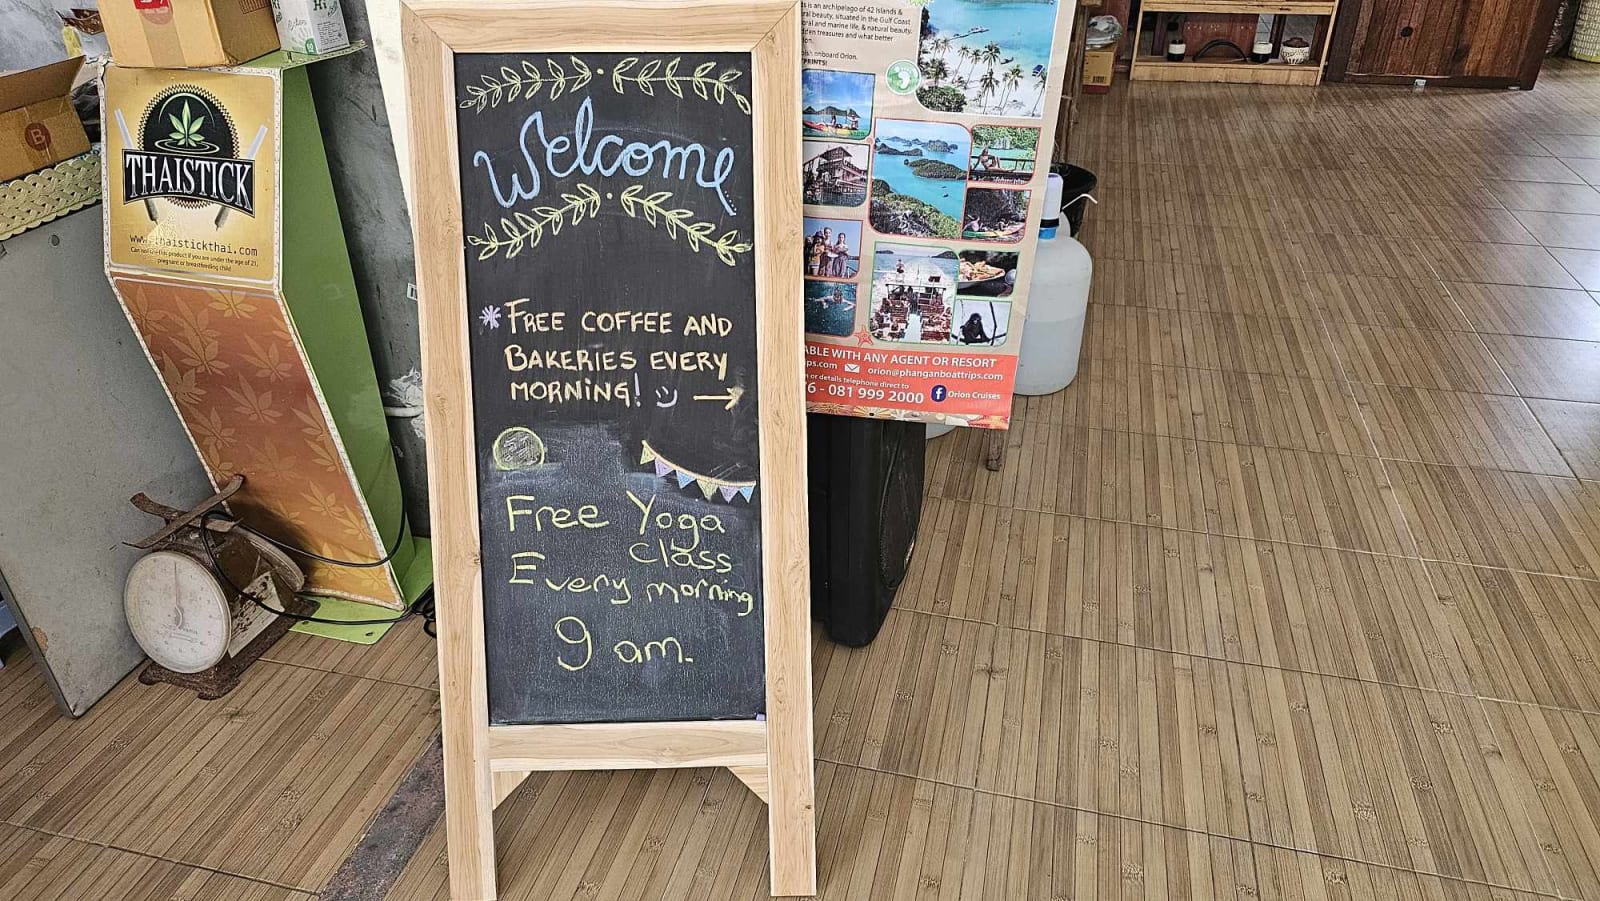 THAISTICK
www.thaistickthai.com
Can not use this product if you are under the age of 21,
pregnant or breastfeeding child
Welcome
FREE COFFEE AND
BAKERIES EVERY
MORNING!
Free Yoga
Class
Every morning
9 am.
is an archipelago of 42 islands &
ral beauty, situated in the Gulf Coast
oral and marine life, & natural beauty.
dden treasures and what better
onboard Orion.
PRINTS!
ABLE WITH ANY AGENT OR RESORT
ps.com orion@phanganboattrips.com
n or details telephone direct to
6 - 081 999 2000 f Orion Cruises